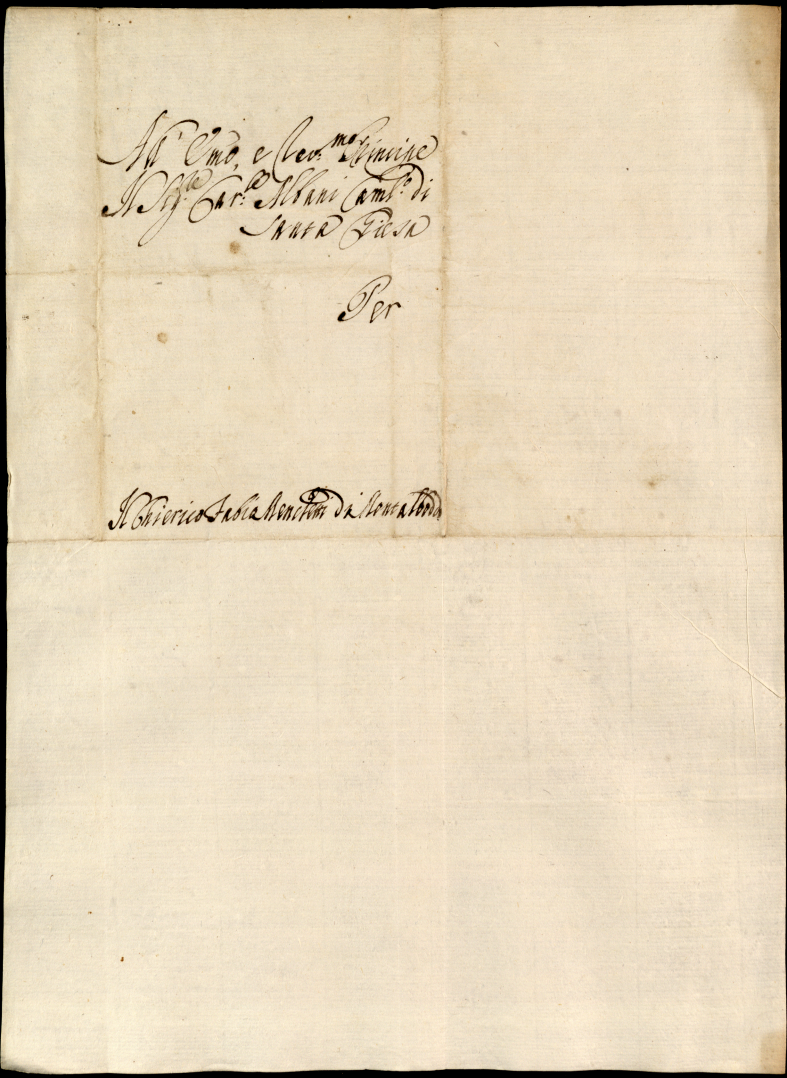 All' Emo, e Rev.mo Principe
Il Sig.re Car.le Albani Caml.o di
Santa Giesa
Per
Il Chierico Fabia di Montalbodd